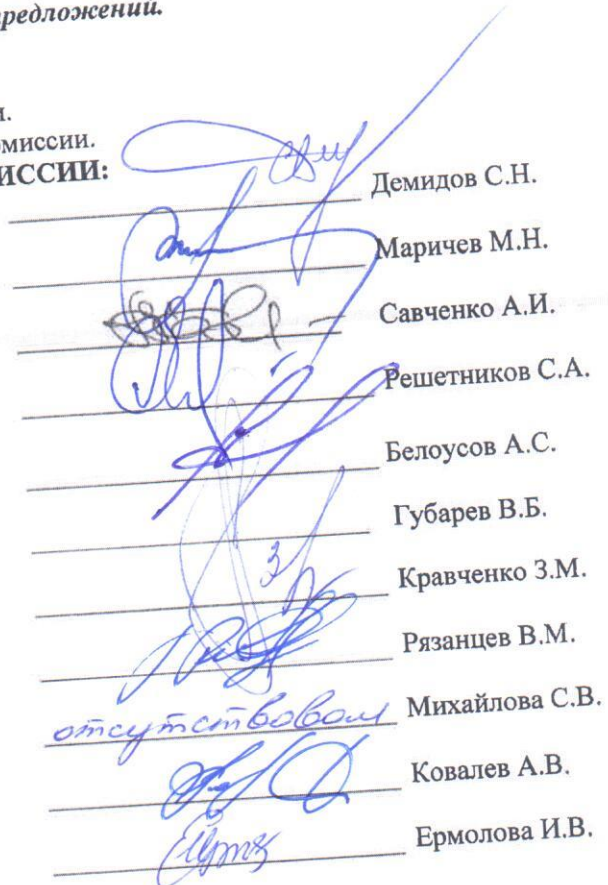 редложений.
и.
миссии.
ИССИИ:
Демидов С.Н.
Маричев М.Н.
Савченко А.И.
Решетников С.А.
Белоусов А.С.
Губарев В.Б.
Кравченко З.М.
Рязанцев В.М.
отсутствовал Михайлова С.В.
Ковалев А.В.
Ермолова И.В.